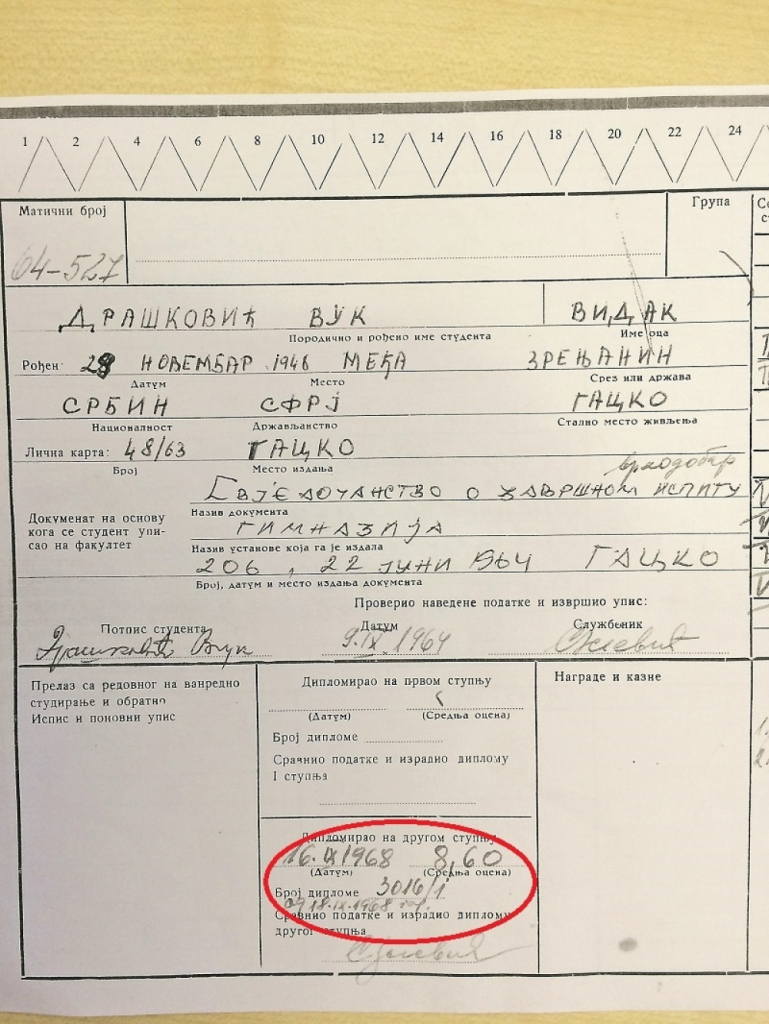 1 2 4 6 8 10 12 14 16 18 20 22 24
Матични број
Група
64-527
ДРАШКОВИЋ ВУК ВИДАК
Породично и рођено име студента Име оца
Рођен: 28 НОВЕМБАР 1946 МЕЂА ЗРЕЊАНИН
Датум Место Срез или држава
СРБИН СФРЈ ГАЦКО
Националност Држављанство Стално место живљења
Лична карта: 48/63 ГАЦКО
Број Место издања
врлодобар
СВЈЕДОЧАНСТВО О ЗАВРШНОМ ИСПИТУ
Назив документа
Документ на основу
кога се студент упи-
сао на факултет
ГИМНАЗИЈА
Назив установе која га је издала
206, 22 ЈУНИ 1964 ГАЦКО
Број, датум и место издања документа
Проверио наведене податке и извршио упис:
Потпис студента Датум Службеник
Драшковић Вук 9.IX.1964
Прелаз са редовног на ванредно
студирање и обратно
Испис и поновни упис
Дипломирао на првом ступњу
(Датум) (Средња оцена)
Број дипломе
Сравнио податке и израдио диплому
I ступња
Дипломирао на другом ступњу
16.IX 1968 8,60
(Датум) (Средња оцена)
Број дипломе 3016/1
од 18.IX.1968
Сравнио податке и израдио диплому
другог ступња
Награде и казне